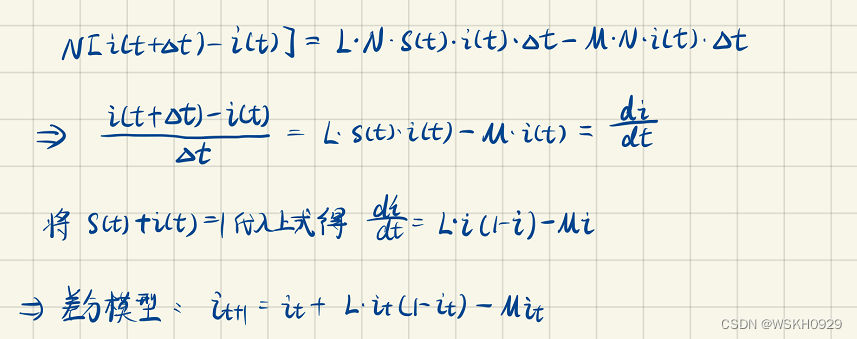 N[i(t+Δt)-i(t)] = L·N·S(t)·i(t)·Δt - M·N·i(t)·Δt
⇒ \frac{i(t+Δt)-i(t)}{Δt} = L·S(t)·i(t) - M·i(t) = \frac{di}{dt}
将 S(t)+i(t)=1代入上式得 \frac{di}{dt} = L·i(1-i) - Mi
⇒ 差分模型: i_{t+1} = i_t + L·i_t(1-i_t) - Mi_t
CSDN @WSKH0929